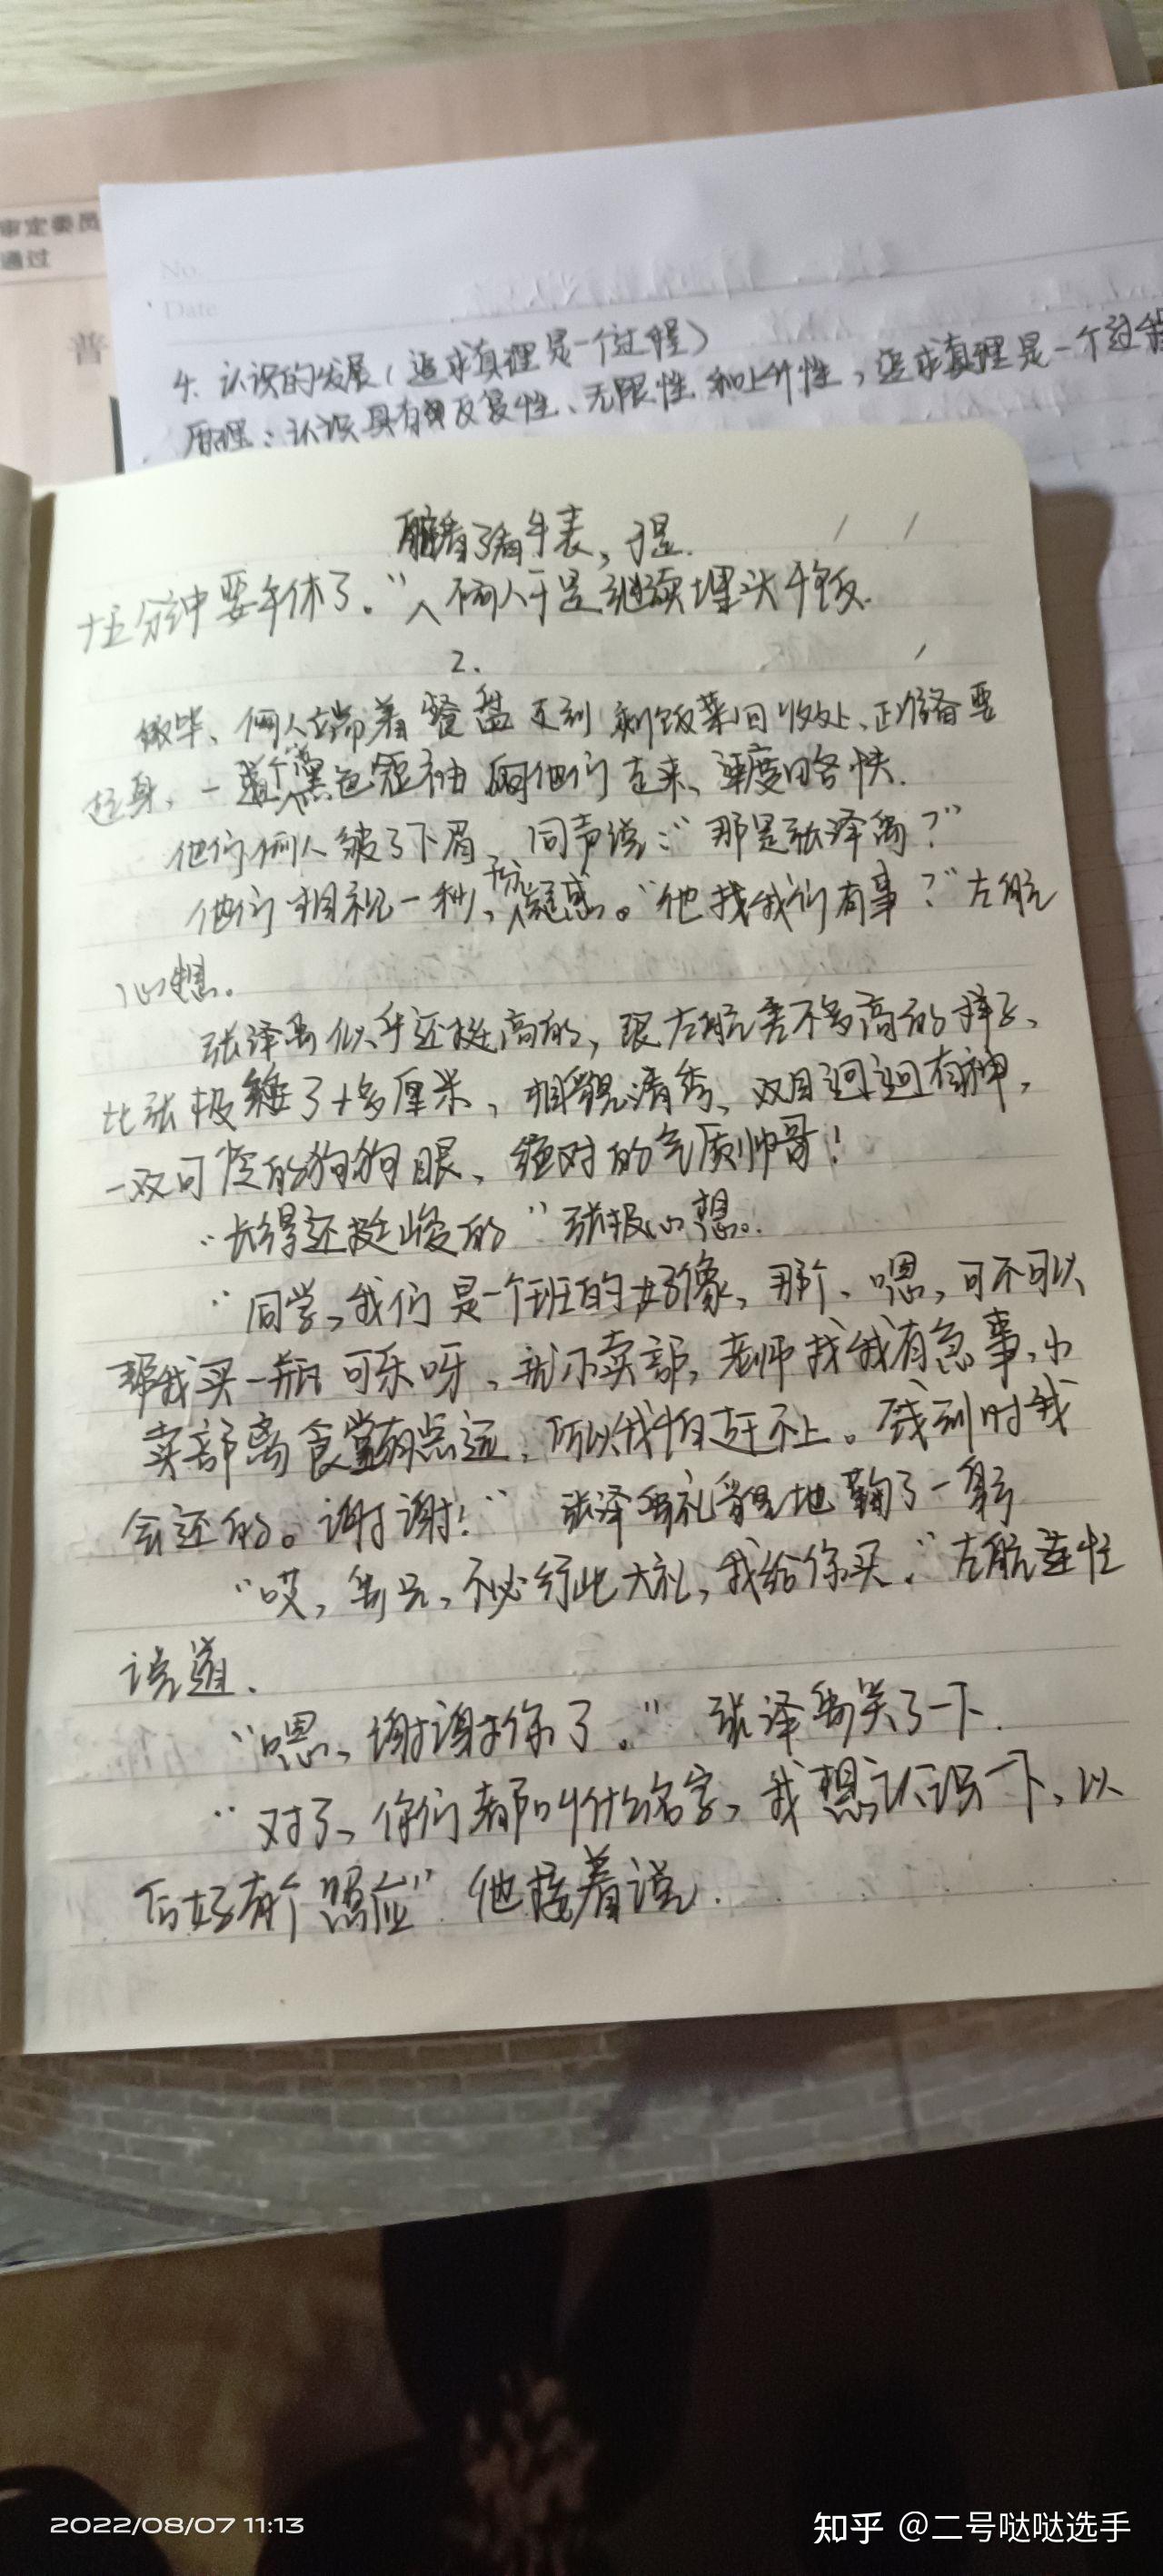 审定委员
通过
普
No.
Date
4. 认识的发展(追求真理是一个过程)
原理:认识具有反复性、无限性和上升性,追求真理是一个过程
看了看手表,于是.
十五分钟要午休了。”俩人于是继续埋头干饭.
2.
俩人端着餐盘走到剩饭菜回收处、正准备要
起身、一道个黑色短袖向他们走来、速度略快.
他们俩人皱了下眉,同声说:“那是张泽禹?”
他们相视一秒,疑惑。“他找我们有事?”左航
心想。
张泽禹似乎还挺高的,跟左航差不多高的样子、
比张极矮了十多厘米、相貌清秀、双目迥迥有神,
一双可怜的狗狗眼、绝对的气质帅哥!
“长得还挺俊的”张极心想。
“同学,我们是一个班的好像,那个、嗯,可不可以
帮我买一瓶可乐呀、就小卖部,老师找我有急事,小
卖部离食堂有点远,所以我怕赶不上。钱到时我
会还的。谢谢!”张泽禹礼貌地鞠了一躬
“哎,禹兄,不必行此大礼,我给你买。”左航连忙
说道.
“嗯、谢谢你了。”张泽禹笑了一下.
“对了、你们都叫什么名字、我想认识一下、以
后好有个照应”他接着说.
2022/08/07 11:13
知乎 @二号哒哒选手